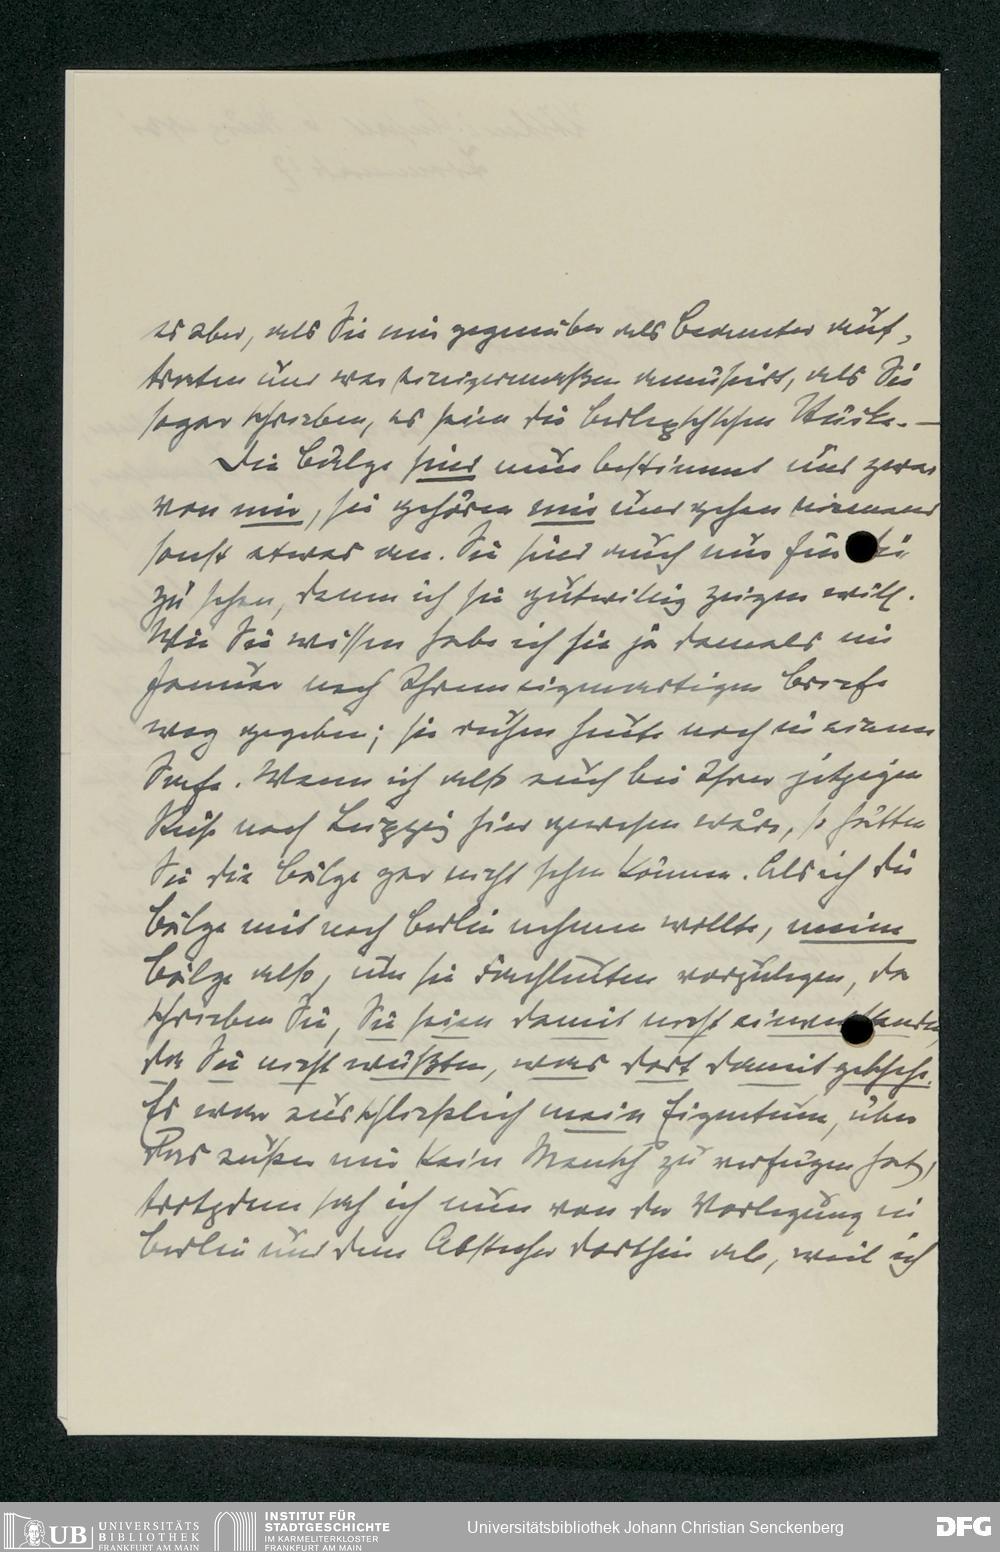 es aber, als Sie mir gegenüber als Beamter auf-
traten und war einigermaßen amüsirt, als Sie
sogar schrieben, es seien die Berlepschschen Stücke. —
Die Bälge sind nun bestimmt und zwar
von mir, sie gehören mir und gehen niemand
sonst etwas an. Sie sind auch nur für die
zu sehen, denen ich sie gutwillig zeigen will.
Wie Sie wissen habe ich sie ja damals im
Januar nach Ihrem eigenartigen Briefe
weg gegeben; sie ruhen heute noch in einem
Safe. Wenn ich also auch bei Ihrer jetzigen
Reise nach Leipzig hier gewesen wäre, so hätten
Sie die Bälge gar nicht sehen können. Als ich die
Bälge mit nach Berlin nehmen wollte, meine
Bälge also, um sie Fachleuten vorzulegen, da
schrieben Sie, Sie seien damit nicht einverstanden,
da Sie nicht wüßten, was dort damit geschehe.
Es war ausschließlich mein Eigentum, über
das außer mir kein Mensch zu verfügen hat,
trotzdem sah ich nun von der Vorlegung in
Berlin und dem Abstecher dorthin ab, weil ich
UB UNIVERSITÄTS
BIBLIOTHEK
FRANKFURT AM MAIN
INSTITUT FÜR
STADTGESCHICHTE
IM KARMELITERKLOSTER
FRANKFURT AM MAIN
Universitätsbibliothek Johann Christian Senckenberg
DFG